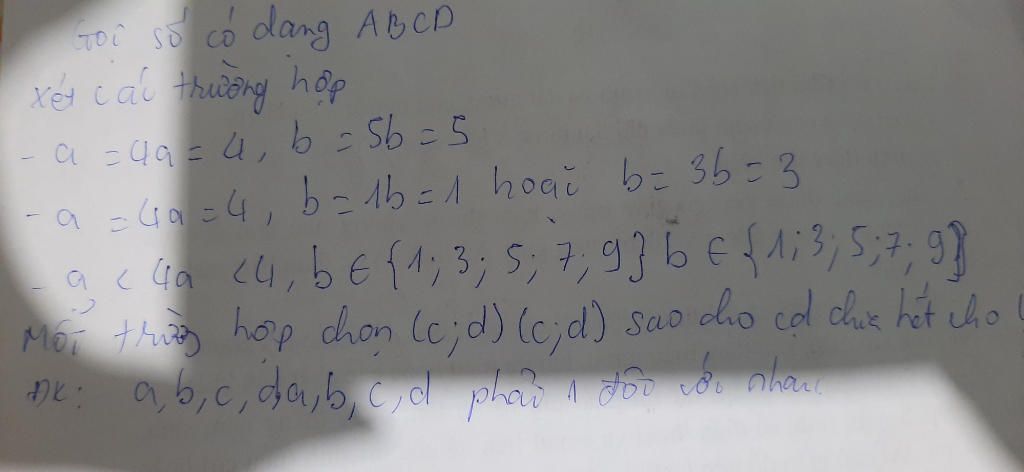 Gọi số có dạng ABCD
Xét các trường hợp
- a = 4a = 4, b = 5b = 5
- a = 4a = 4, b = 1b = 1 hoặc b = 3b = 3
- a < 4a < 4, b ∈ {1; 3; 5; 7; 9} b ∈ {1; 3; 5; 7; 9}
Mỗi trường hợp chọn (c;d) (c;d) sao cho cd chia hết cho
ĐK: a, b, c, d, a, b, c, d phải 1 đôi với nhau.